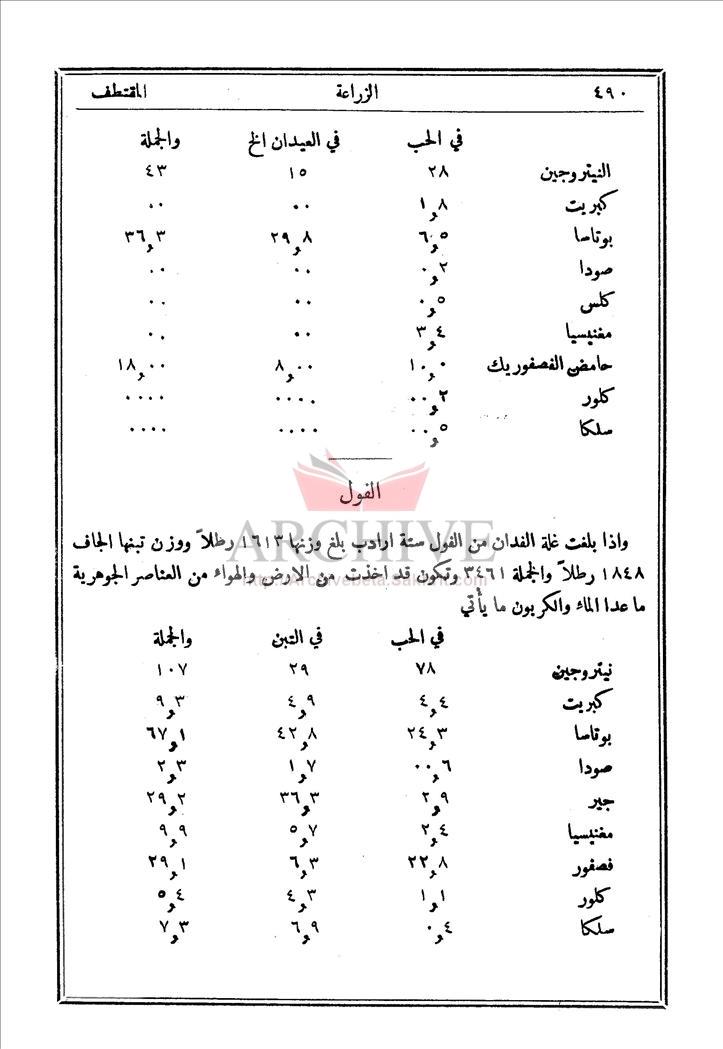 ٤٩٠ الزراعة المقتطف
في الحب في العيدان الخ والجملة
النيتروجين ٢٨ ١٥ ٤٣
كبريت ١,٨ ٠٠ ٠٠
بوتاسا ٦,٥ ٢٩,٨ ٣٦,٣
صودا ٠,٢ ٠٠ ٠٠
كلس ٠,٥ ٠٠ ٠٠
مغنيسيا ٣,٤ ٠٠ ٠٠
حامض الفصفوريك ١٠,٠ ٨,٠٠ ١٨,٠٠
كلور ٠٠,٢ ٠٠٠٠ ٠٠٠٠
سلكا ٠٠,٥ ٠٠٠٠ ٠٠٠٠
الفول
واذا بلغت غلة الفدان من الفول ستة ارادب بلغ وزنها ١٦١٣ رطلاً ووزن تبنها الجاف
١٨٤٨ رطلاً والجملة ٣٤٦١ وتكون قد اخذت من الارض والهواء من العناصر الجوهرية
ما عدا الماء والكربون ما يأتي
في الحب في التبن والجملة
نيتروجين ٧٨ ٢٩ ١٠٧
كبريت ٤,٤ ٤,٩ ٩,٣
بوتاسا ٢٤,٣ ٤٢,٨ ٦٧,١
صودا ٠٠,٦ ١,٧ ٢,٣
جير ٢,٩ ٣٦,٣ ٢٩,٢
مغنيسيا ٢,٤ ٥,٧ ٩,٩
فصفور ٢٢,٨ ٦,٣ ٢٩,١
كلور ١,١ ٤,٣ ٥,٤
سلكا ٠,٤ ٦,٩ ٧,٣
ARCHIVE
http://Archivebeta.Sakhrit.com